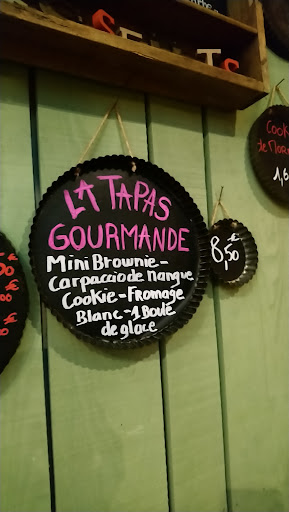 LA TAPAS
GOURMANDE
Mini Brownie-
Carpaccio de Mangue
Cookie-Fromage
Blanc-1 Boule
de glace
8,50€
Cook
1,6